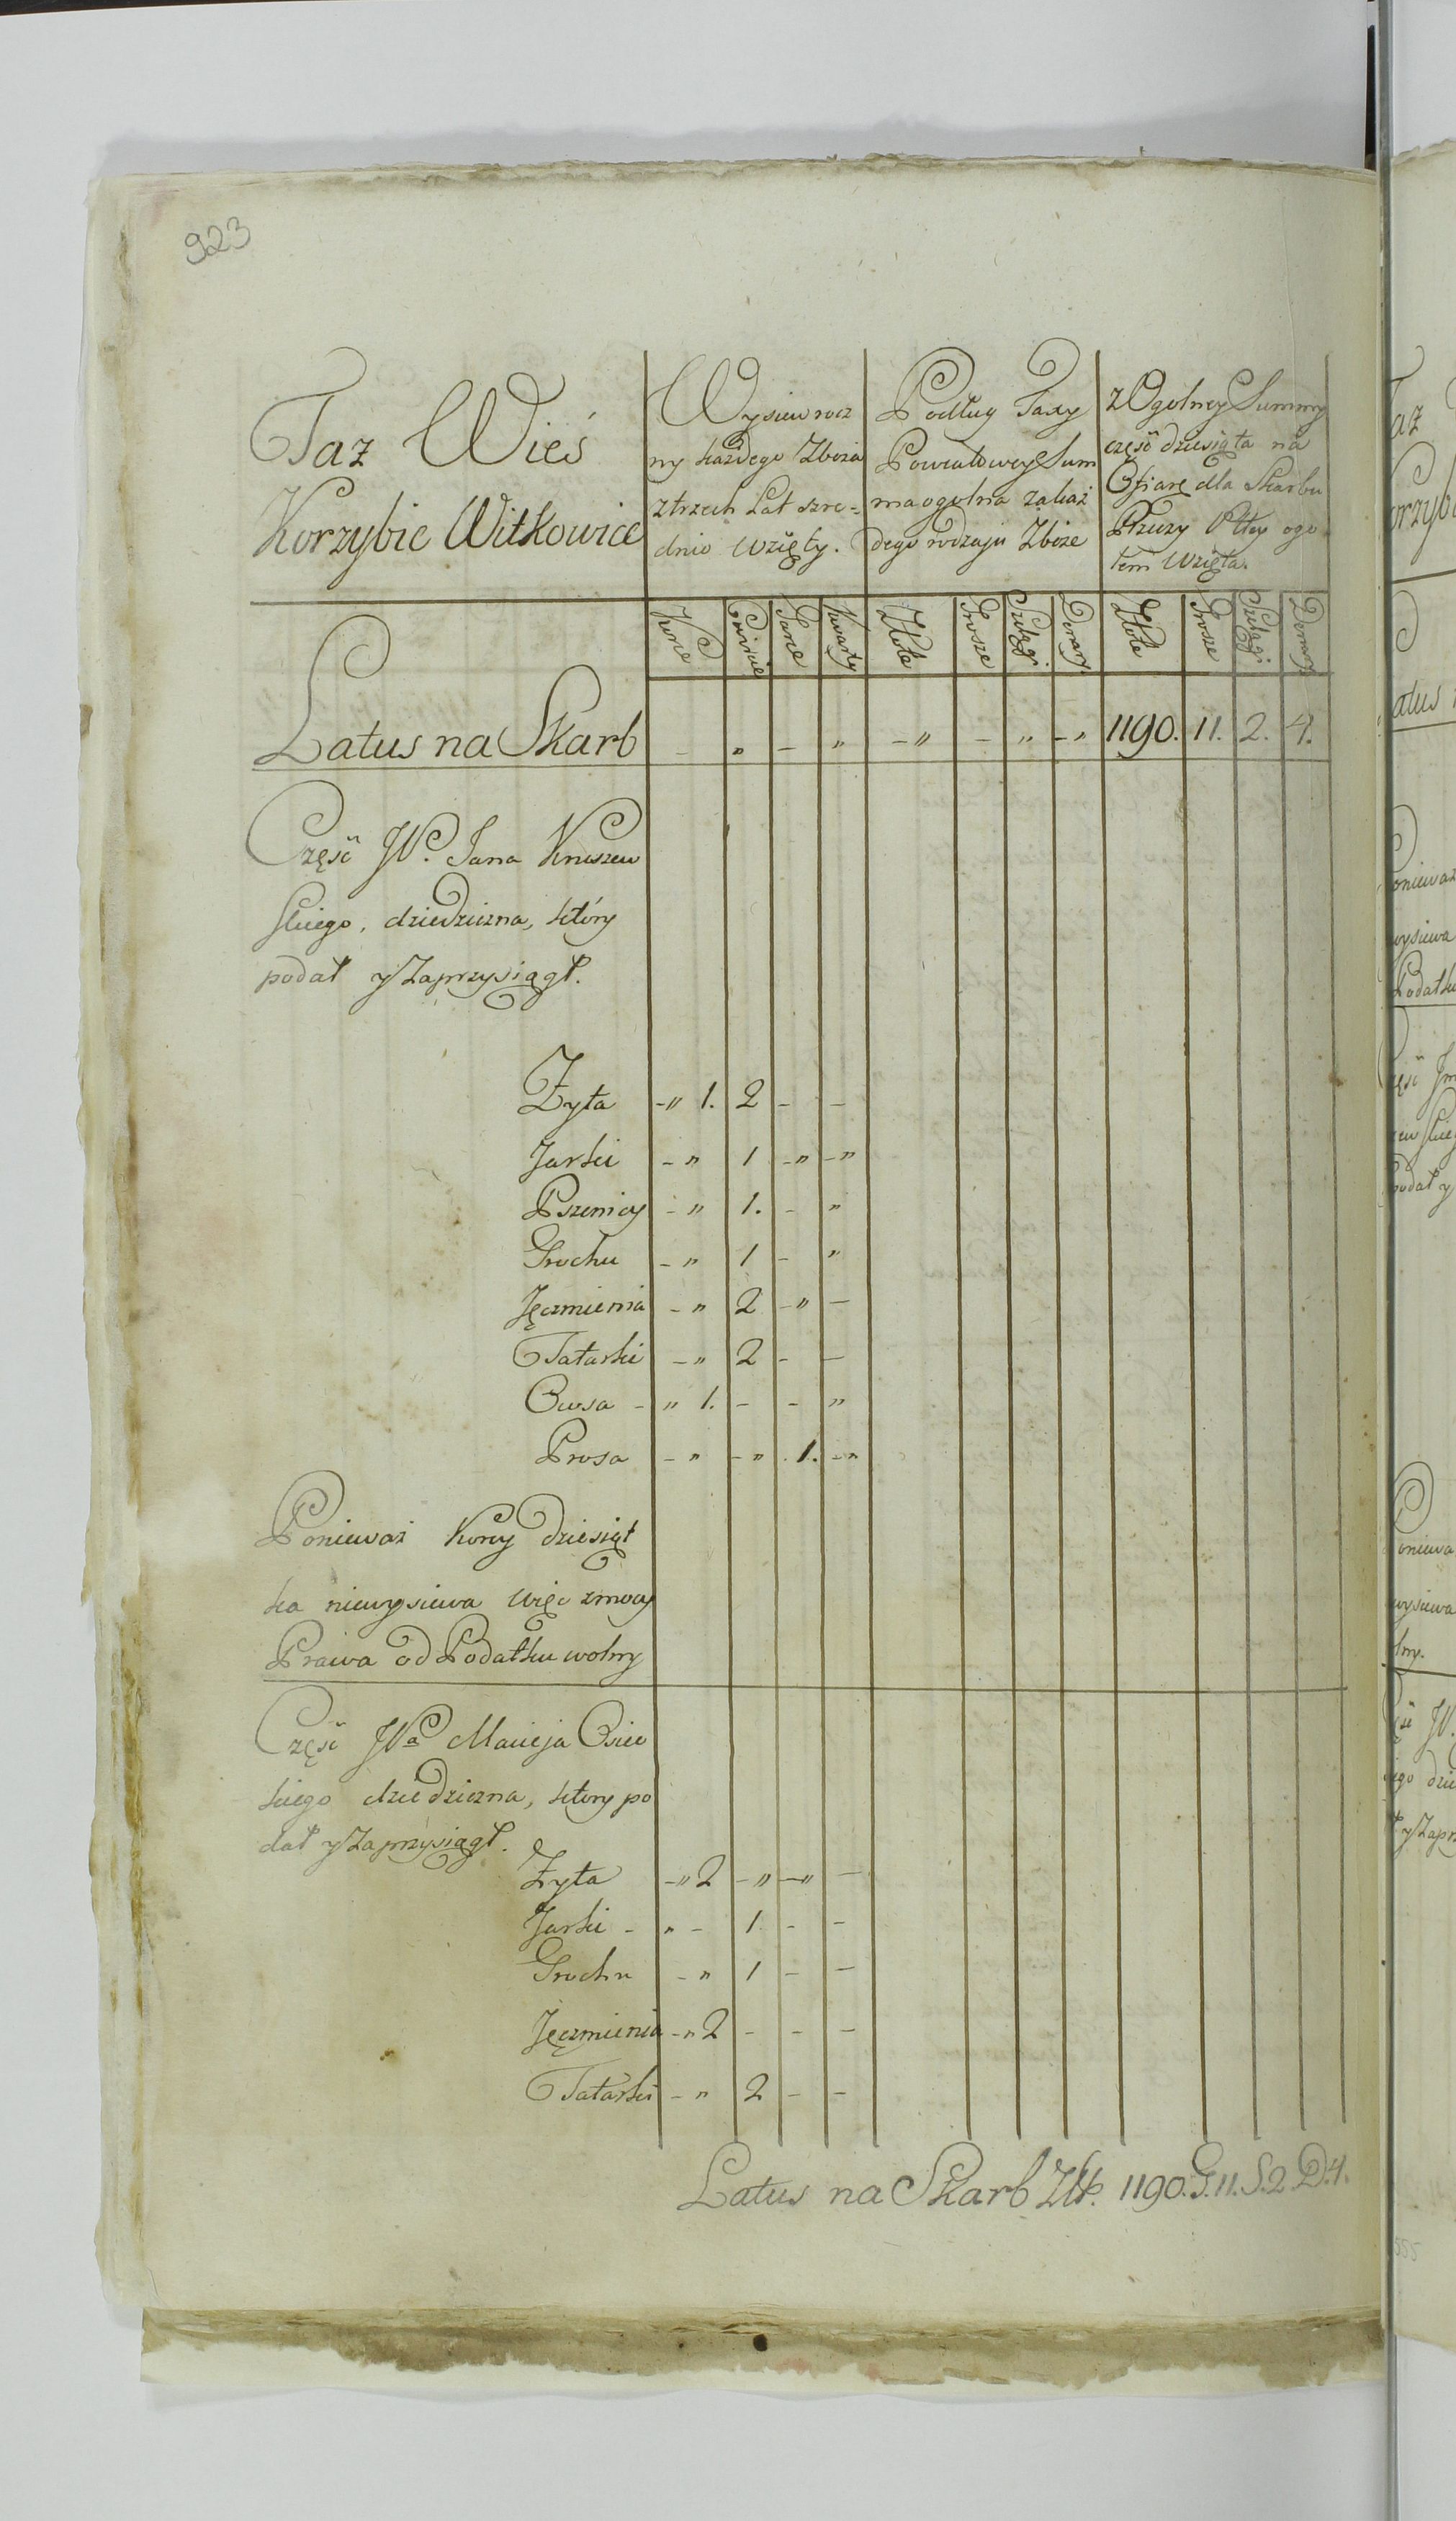 923
Taz Wieś
Korzybie Witkowice
Wysiew rocz
ny każdego Zboża
z trzech Lat szre=
dnio wzięty.
Podług Taxy
Powiatowey Sum
ma ogolna zakaż
dego rodzaju Zboże
z Ogolney Summy
część dziesiąta na
Ofiarę dla Skarbu
Rzeczy Pltey ogo
łem wzięta.
Korce Cwierci Garce Kwarty Złote Grosze Szelągi Denary Złote Grosze Szelągi Denary
Latus na Skarb - „ - „ - „ - „ - „ 1190. 11. 2. 4.
Część JP. Jana Kruszew
skiego, dziedzizna, który
podał y Zaprzysiągł.
Żyta - „ 1. 2 - -
Jarki - „ 1 - „ - „
Pszenicy - „ 1. - „
Grochu - „ 1 - „
Jęczmienia - „ 2 - „ -
Tatarki - „ 2 - -
Owsa - „ 1. - - „
Prosa - „ - „ . 1. - „
Poniewaz Korcy dziesiąt
ka niewysiewa więc zmocy
Prawa od Podatku wolny
Część JPa Macieja Osie
kiego dziedzizna, ktory po
dał y Zaprzysiągł.
Żyta - „ 2 - „ - „ -
Jarki - „ - 1 - -
Grochu - „ 1 - -
Jęczmienia - „ 2 - - -
Tatarki - „ 2 - -
Latus na Skarb Złt. 1190. G. 11. S. 2. D. 4.